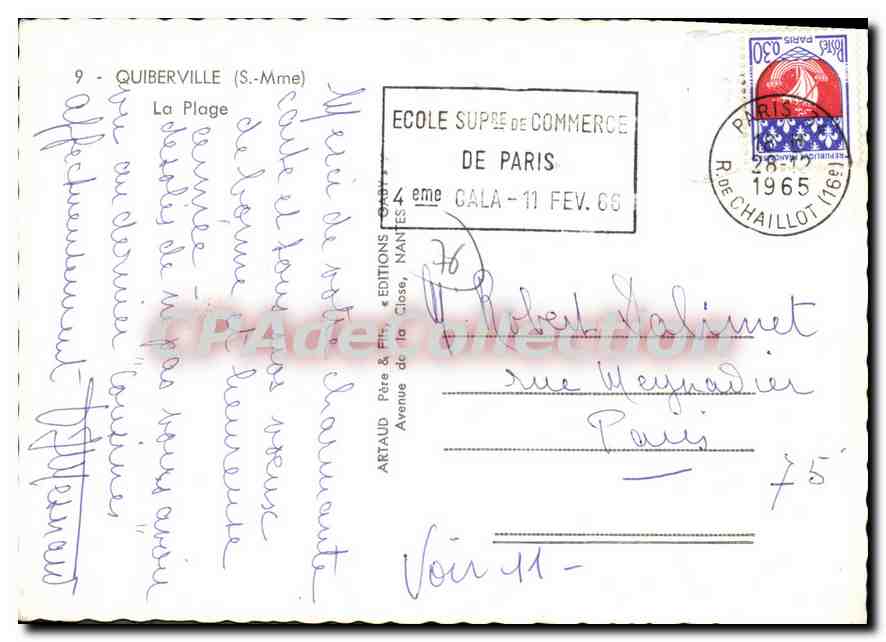 9 - QUIBERVILLE (S.-Mme)
La Plage
Merci de votre charmante
carte et tous nos vœux
de bonne et heureuse
année -
désolés de n'pas vous avoir
vu au dernier "Counines"
affectueusement -
ARTAUD Père & Fils, « EDITIONS GABY »
Avenue de la Close, NANTES
ECOLE SUPRE DE COMMERCE
DE PARIS
4 eme GALA - 11 FEV. 66
POSTES
0,30
PARIS
REPUBLIQUE FRANÇAISE
PARIS
28-12
1965
R. DE CHAILLOT (16e)
76
M. Robert Dalimet
rue Meynadier
Paris
75
Voir 11 -
CPAdeCollection